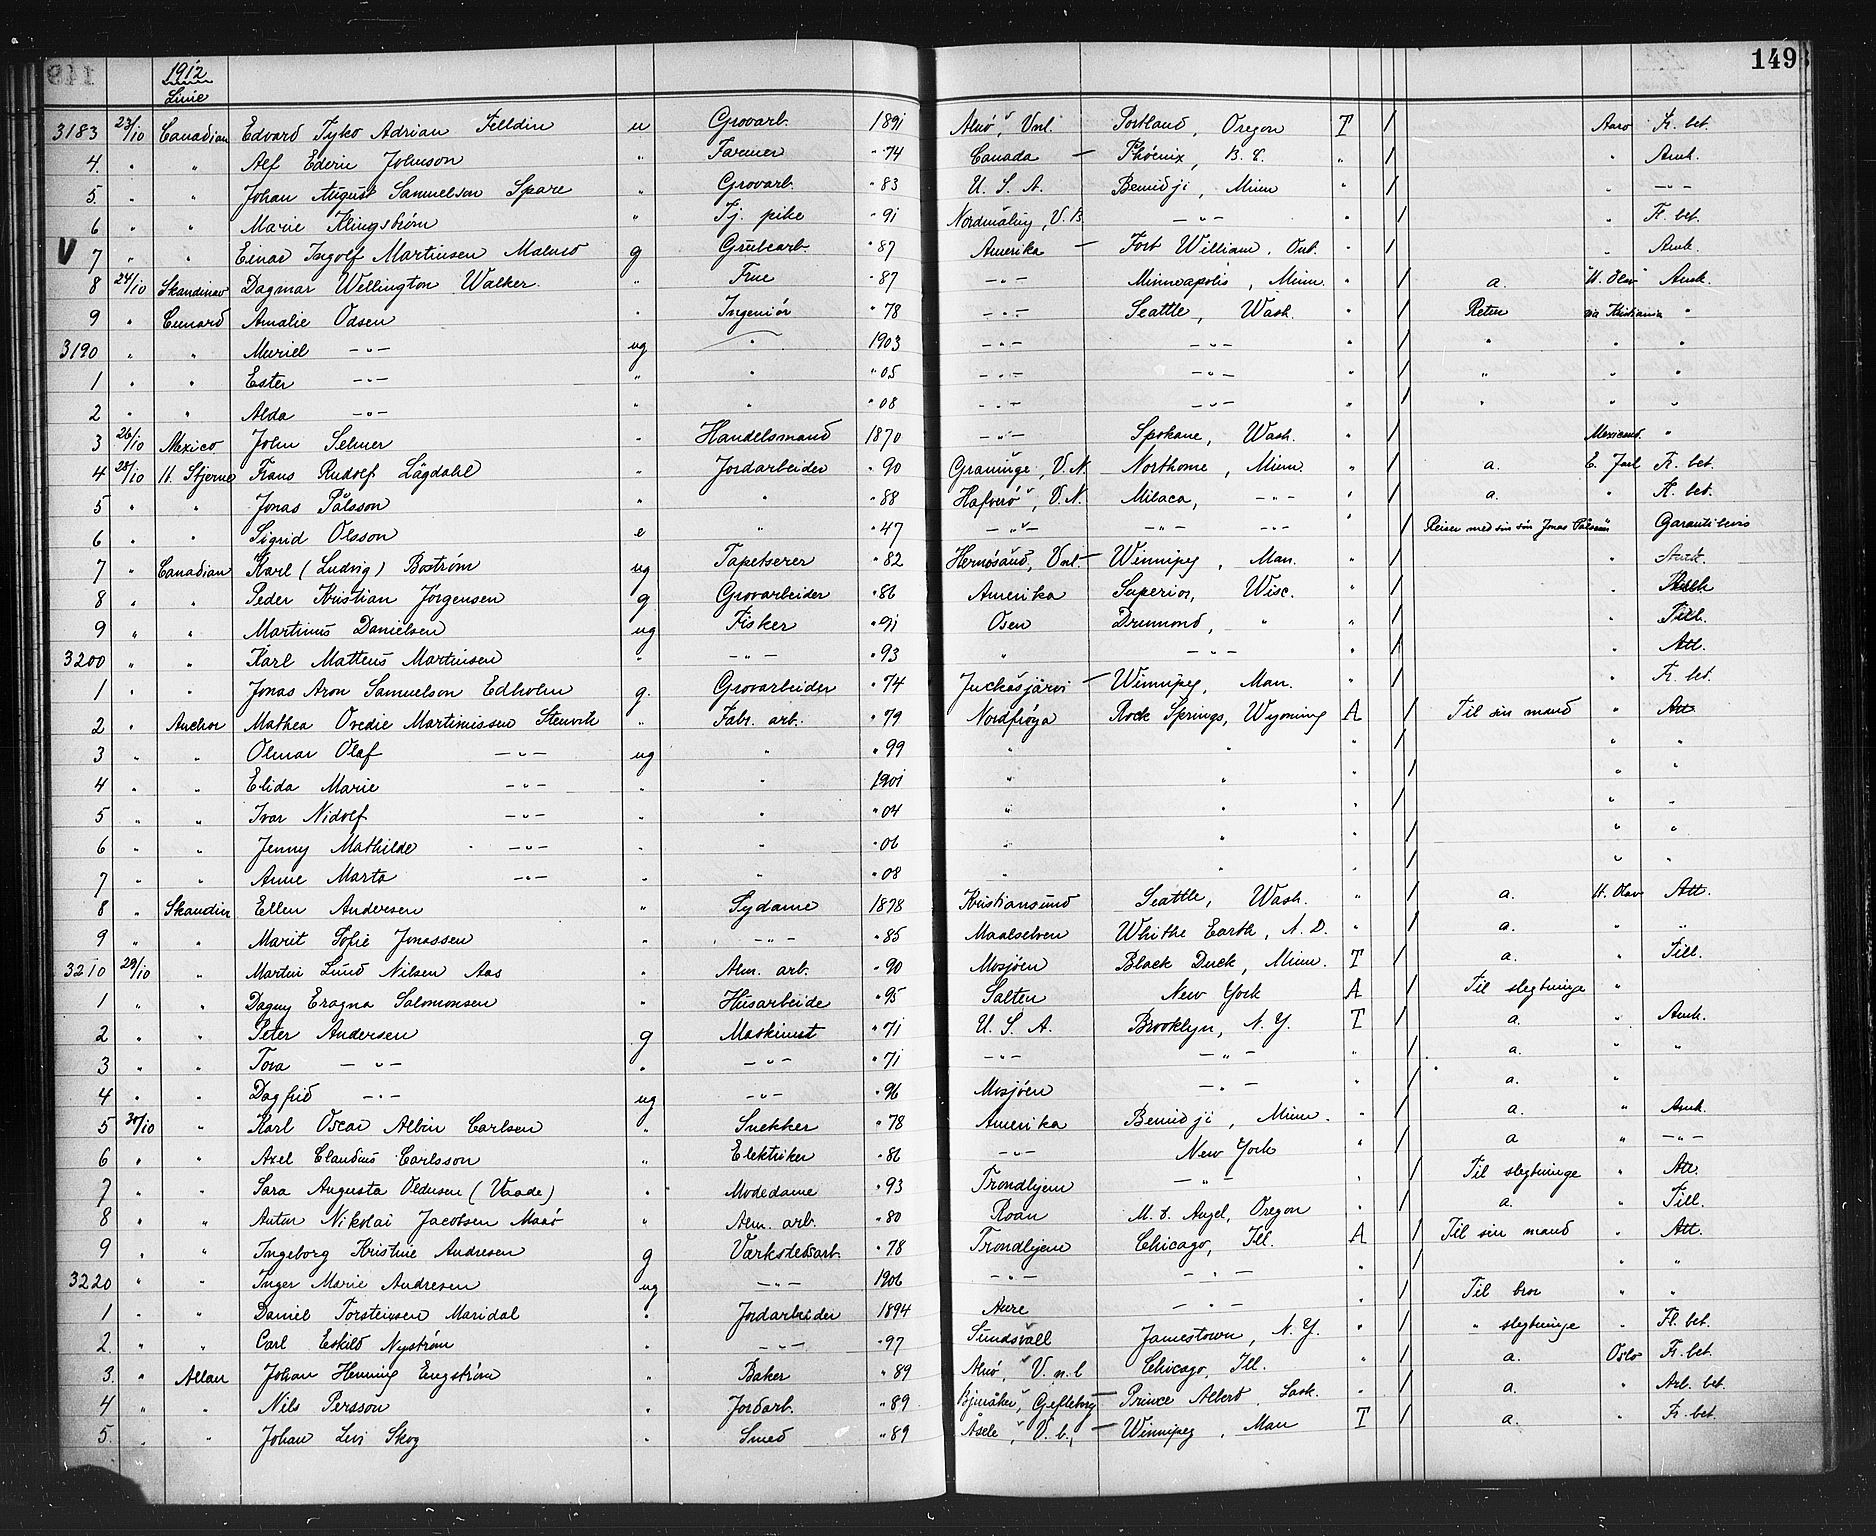 149
1912
Linie
3183 23/10 Canadian Edvard Tyko Adrian Filldin u Grovarb. 1891 Alnö, Vnl. Portland, Oregon T / Aaro Fr. bet.
4. " " Alf Ederin Johnson " Farmer " 74 Canada — Phoenix, B. C. " / " Amk.
5. " " Johan August Samuelson Spare " Grovarb. " 83 U. S. A. Bemidji, Minn " / " —"—
6 " " Marie Klingström " Tj. pike " 91 Nordmaling, V.B. —"— " / " Fr. bet.
V 7 " " Einar Ingolf Martinsen Malmo g Grubearb. " 87 Amerika — Fort William, Ont. " / " Amk.
8 24/10 Skandinav Dagmar Wellington Walker. " Frue " 87 —"— Minneapolis, Minn. " / a. "H. Olav" Amk.
9 " Cunard Amalie Odsen " Ingeniör " 78 —"— Seattle, Wash. " / Retur via Kristiania "
3190 " " Muriel —"— ug " 1903 —"— —"— " / " " "
1 " " Ester —"— " " " 05 —"— —"— " / " " "
2 " " Alda —"— " " " 08 —"— —"— " / " " "
3 26/10 Mexico John Selmer " Handelsmand 1870 —"— Spokane, Wash. " / Mexicand. "
4 28/10 H. Stjerne Frans Rudolf Lägdahl " Jordarbeider " 90 Graninge, V.N. Northome, Minn " / a. E. Jarl Fr. bet.
5 " " Jonas Pålsson " " " 88 Hafverö, V.N. Milaca, —"— " / a. " Fr. bet.
6 " " Sigrid Olsson e " " 47 —"— —"— —"— " / Reiser med sin sön Jonas Pålsson Garantibevis
7 " Canadian Karl (Ludvig) Boström ug Tapetserer " 82 Hernösand, Vnl. — Winnipeg, Man. " / " Amk.
8 " " Peder Kristian Jörgensen g Grovarbeider " 86 Amerika Superior, Wisc. " / " Amk
9 " " Martinus Danielsen ug Fisker " 91 Osen Drumond, " " / " Till.
3200 " " Karl Matteus Martinsen " —"— " 93 " —"— " / " Att.
1 " " Jonas Aron Samuelson Edholm g. Grovarbeider " 74 Juckasjärvi — Winnipeg, Man. " / " Fr. bet.
2 " Anchor Mathea Ovedie Martinissen Stenvik " Fabr. arb. " 79 Nordfröya Rock Springs, Wyoming A / Til sin mand " Att
3 " " Olmar Olaf —"— ug " " 99 " " " / " "
4 " " Elida Marie —"— " " 1901 " " " / " "
5 " " Ivar Nidolf —"— " " " 04 " " " / " "
6 " " Jenny Mathilde —"— " " " 06 " " " / " "
7 " " Anne Marta —"— " " " 08 " " " / " "
8 " Skandin Ellen Andersen " Sydame 1878 Kristiansund Seattle, Wash. " / a. H. Olav Att.
9 " " Marit Sofie Jonassen " —"— " 85 Maalselven Whithe Earth, N. D. " / a. " "
3210 29/10 " Martin Lund Nilsen Aas " Alm. arb. " 90 Mosjöen Black Duck, Minn. T / a. " Till.
1 " " Dagny Eragna Salomonsen " Husarbeide " 95 Salten New York A / Til slegtninge "
2 " " Peter Andersen g Maskinist " 71 U. S. A. Brooklyn, N. Y. T / a. " Amk.
3 " " Tora —"— " —"— " 71 —"— —"— " / a. " "
4 " " Dagfrid —"— ug —"— " 96 Mosjöen —"— " / a. "
5 30/10 " Karl Oscar Albin Carlsen " Snekker " 78 Amerika Bemidji, Minn. " / a. " Amk.
6 " " Axel Claudius Carlsson " Elektriker " 86 —"— New York " / a " —"—
7 " " Sara Augusta Oldusen (Vaade) " Modedame " 93 Trondhjem —"— " / Til slegtninge " Att.
8 " " Anton Nikolai Jacobsen Maaö " Alm. arb. " 80 Roan M.t. Angel, Oregon " / a. " Till.
9 " " Ingeborg Kristine Andresen g Værkstedsarb. " 78 Trondhjem Chicago, Ill. A / Til sin mand " Att.
3220 " " Inger Marie Andresen ug —"— 1906 —"— —"— " / " "
1 " " Daniel Torsteinsen Maridal " Jordarbeider 1894 Aure —"— " / Til bror " "
2. " " Carl Eskild Nyström " —"— " 97 Sundsvall Jamestown, N. Y. " / " slegtninge " Fl. bet.
3. " Allan Johan Henning Engström " Baker " 89 Alnö, V. n. l Chicago, Ill. " / a. Oslo Fr. bet.
4 " " Nils Persson " Jordarb. " 89 Bjuråker, Gefleborg — Prince Albert, Sask. " / a. " Arb. bet.
5. " " Johan Levi Skog " Smed " 89 Åsele, V. b., — Winnipeg, Man T / a. " Fr. bet.